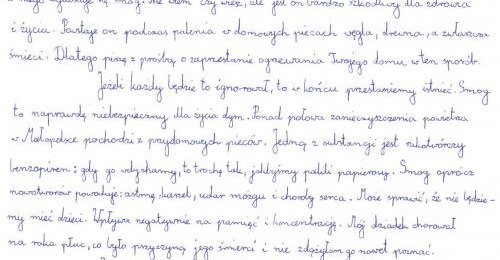 się smog. Nie wiem czy wiesz, ale jest on bardzo szkodliwy dla zdrowia
i życia. Powstaje on podczas palenia w domowych piecach węgla, drewna, a zwłaszcza
śmieci. Dlatego piszę z prośbą o zaprzestanie ogrzewania Twojego domu w ten sposób.
Jeżeli każdy będzie to ignorował, to w końcu przestaniemy istnieć. Smog
to naprawdę niebezpieczny dla życia dym. Ponad połowa zanieczyszczenia powietrza
w Małopolsce pochodzi z przydomowych pieców. Jedną z substancji jest rakotwórczy
benzopiren: gdy go wdychamy, to trochę tak, jakbyśmy palili papierosy. Smog oprócz
nowotworów powoduje: astmę, kaszel, udar mózgu i choroby serca. Może sprawić, że nie będzie-
my mieć dzieci. Wpływa negatywnie na pamięć i koncentrację. Mój dziadek chorował
na raka płuc, co było przyczyną jego śmierci i nie zdążyłam go nawet poznać.